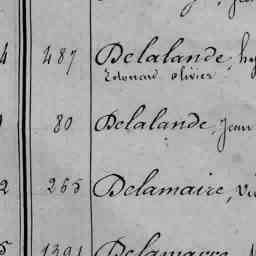 4 487 Delalande, hy
Edouard olivier
80 Delalande, Jean
2 265 Delamaire, vi
5 1391 Delamarre